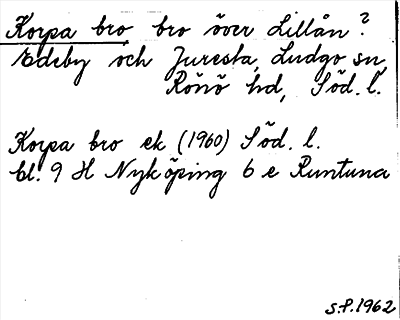 Korpa bro, bro över Lillån?
Edeby och Juresta, Ludgo sn,
Rönö hd, Söd. l.
Korpa bro ek (1960) Söd. l.
bl. 9 H Nyköping 6 e Runtuna
S.P. 1962